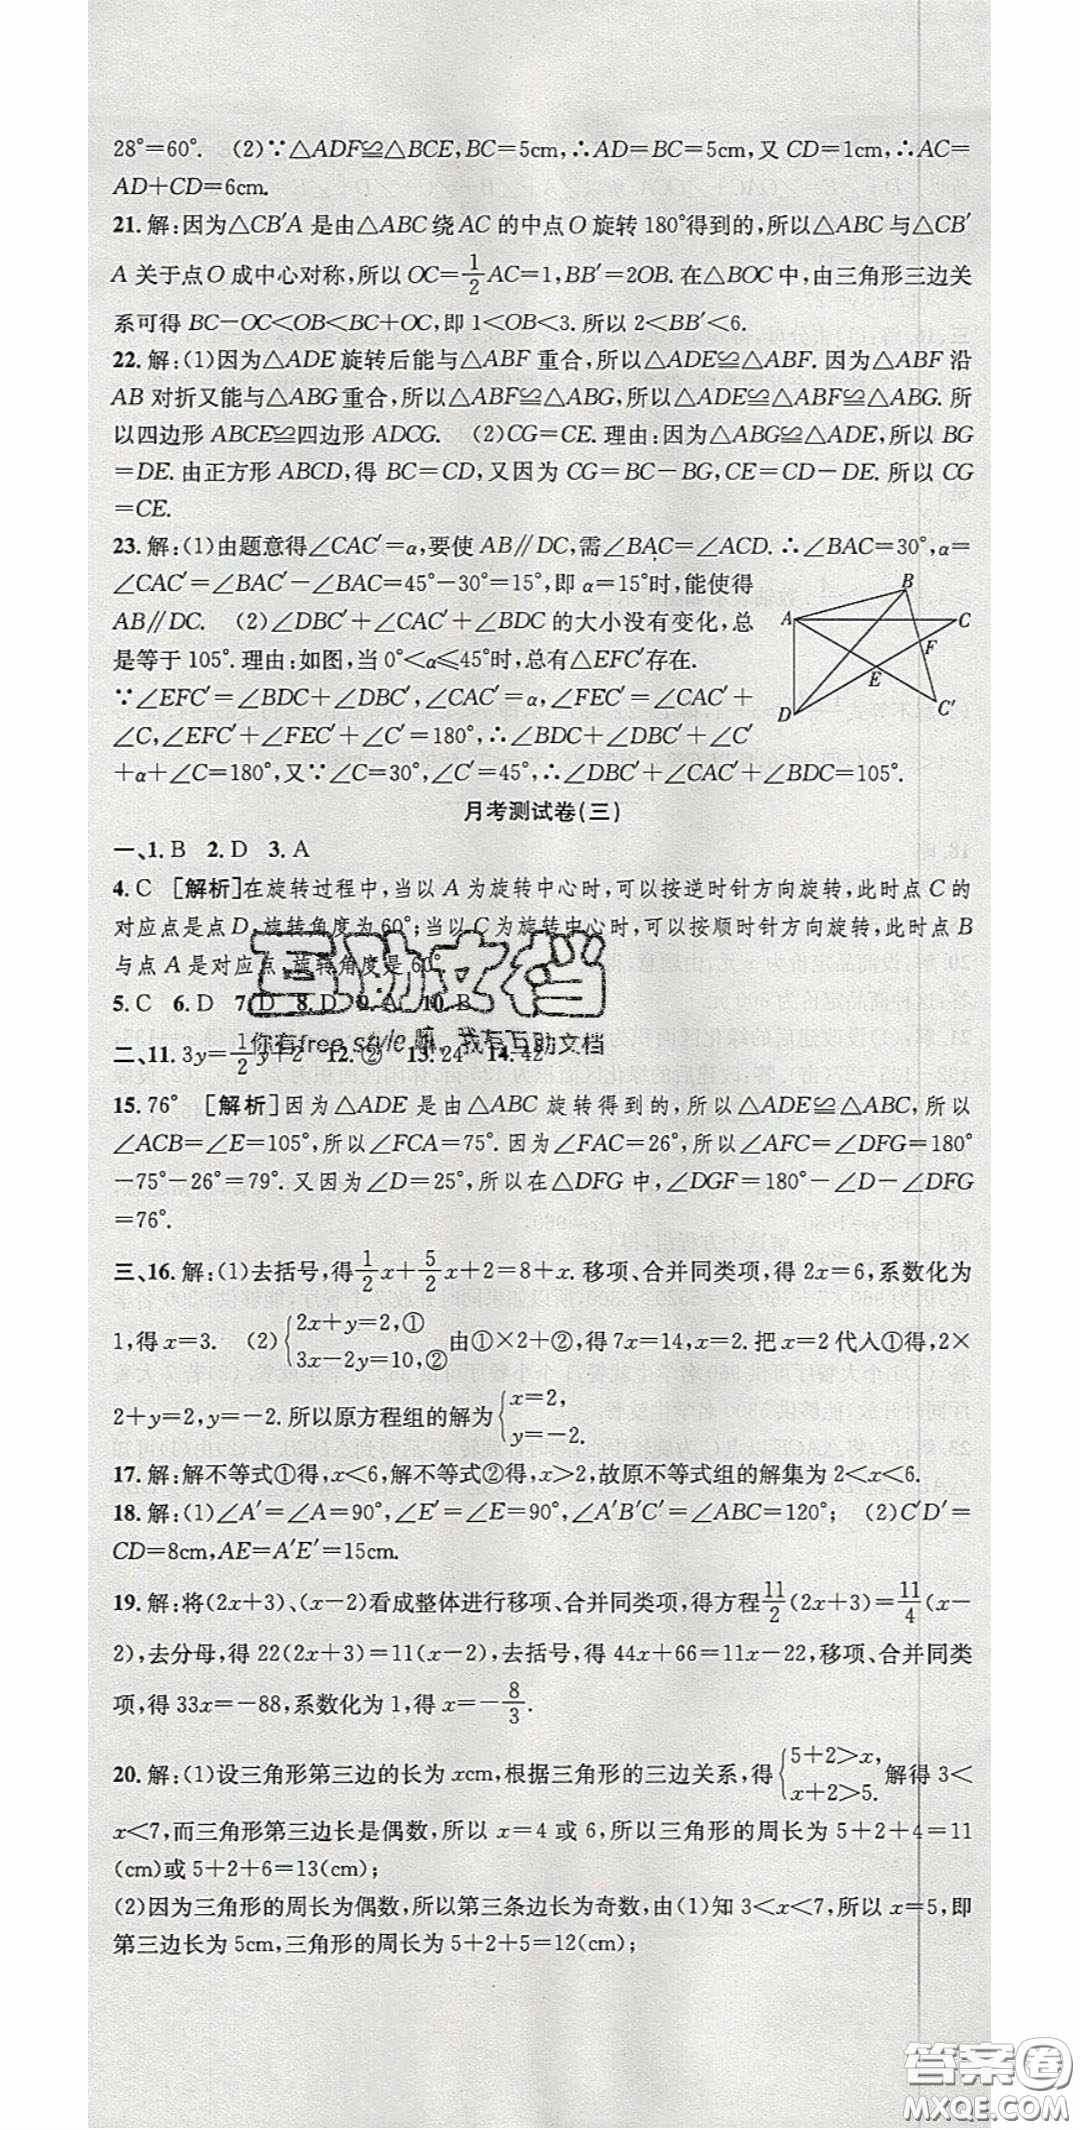 28°=60°. (2)∵△ADF≌△BCE,BC=5cm,∴AD=BC=5cm,又CD=1cm,∴AC=
AD+CD=6cm.
21.解:因为△CB′A是由△ABC绕AC的中点O旋转180°得到的,所以△ABC与△CB′
A关于点O成中心对称,所以OC=1/2AC=1,BB′=2OB.在△BOC中,由三角形三边关
系可得BC-OC<OB<BC+OC,即1<OB<3.所以2<BB′<6.
22.解:(1)因为△ADE旋转后能与△ABF重合,所以△ADE≌△ABF.因为△ABF沿
AB对折又能与△ABG重合,所以△ABF≌△ABG,所以△ADE≌△ABF≌△ABG.所
以四边形ABCE≌四边形ADCG. (2)CG=CE.理由:因为△ABG≌△ADE,所以BG
=DE.由正方形ABCD,得BC=CD,又因为CG=BC-BG,CE=CD-DE.所以CG
=CE.
23.解:(1)由题意得∠CAC′=α,要使AB∥DC,需∠BAC=∠ACD.∴∠BAC=30°,α=
∠CAC′=∠BAC′-∠BAC=45°-30°=15°,即α=15°时,能使得
AB∥DC. (2)∠DBC′+∠CAC′+∠BDC的大小没有变化,总
是等于105°.理由:如图,当0°<α≤45°时,总有△EFC′存在.
∵∠EFC′=∠BDC+∠DBC′,∠CAC′=α,∠FEC′=∠CAC′+
∠C,∠EFC′+∠FEC′+∠C′=180°,∴∠BDC+∠DBC′+∠C′
+α+∠C=180°,又∵∠C=30°,∠C′=45°,∴∠DBC′+∠CAC′+∠BDC=105°.
A
B
C
F
E
D
C′
月考测试卷(三)
一、1.B 2.D 3.A
4.C [解析]在旋转过程中,当以A为旋转中心时,可以按逆时针方向旋转,此时点C的
对应点是点D,旋转角度为60°;当以C为旋转中心时,可以按顺时针方向旋转,此时点B
与点A是对应点,旋转角度是60°.
5.C 6.D 7.D 8.D 9.A 10.B
二、11.3y=1/2y+2 12.② 13.24 14.42
互助文档
你有free style嘛,我有互助文档
15.76° [解析]因为△ADE是由△ABC旋转得到的,所以△ADE≌△ABC,所以
∠ACB=∠E=105°,所以∠FCA=75°.因为∠FAC=26°,所以∠AFC=∠DFG=180°
-75°-26°=79°.又因为∠D=25°,所以在△DFG中,∠DGF=180°-∠D-∠DFG
=76°.
三、16.解:(1)去括号,得1/2x+5/2x+2=8+x.移项、合并同类项,得2x=6,系数化为
1,得x=3. (2){2x+y=2,① 3x-2y=10,② 由①×2+②,得7x=14,x=2.把x=2代人①得,2×
2+y=2,y=-2.所以原方程组的解为{x=2, y=-2.
17.解:解不等式①得,x<6,解不等式②得,x>2,故原不等式组的解集为2<x<6.
18.解:(1)∠A′=∠A=90°,∠E′=∠E=90°,∠A′B′C′=∠ABC=120°; (2)C′D′=
CD=8cm,AE=A′E′=15cm.
19.解:将(2x+3)、(x-2)看成整体进行移项、合并同类项,得方程11/2(2x+3)=11/4(x-
2),去分母,得22(2x+3)=11(x-2),去括号,得44x+66=11x-22,移项、合并同类
项,得33x=-88,系数化为1,得x=-8/3.
20.解:(1)设三角形第三边的长为xcm,根据三角形的三边关系,得{5+2>x, x+2>5. 解得3<
x<7,而三角形第三边长是偶数,所以x=4或6,所以三角形的周长为5+2+4=11
(cm)或5+2+6=13(cm);
(2)因为三角形的周长为偶数,所以第三条边长为奇数,由(1)知3<x<7,所以x=5,即
第三边长为5cm,三角形的周长为5+2+5=12(cm);
答案圈
MXQE.COM